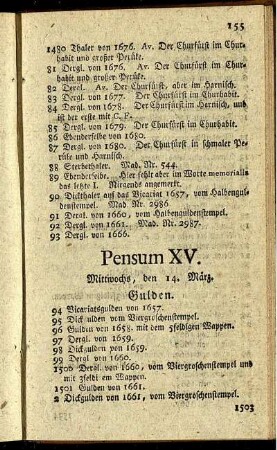 155
1480 Thaler von 1676. Av. Der Churfürst im Churhabit
und großer Perüke.
81 Dergl. von 1676. Av. Der Churfürst im Churhabit
und großer Perüke.
82 Dergl. Av. Der Churfürst, aber im Harnisch.
83 Dergl. von 1677. Der Churfürst im Churhabit.
84 Dergl. von 1678. Der Churfürst im Harnisch, und
ist der erste mit C. F.
85 Dergl. von 1679. Der Churfürst im Churhabit.
86 Ebenderselbe von 1680.
87 Dergl. von 1680. Der Churfürst in schmaler Perüke
und Harnisch.
88 Sterbethaler. Mad. Nr. 544.
89 Ebenderselbe. Hier fehlt aber im Worte memorialis
das letzte I. Nirgends angemerkt.
90 Dickthaler auf das Vicariat 1657, vom Halbenguldenstempel.
Mad Nr. 2986
91 Dergl. von 1660, vom Halbenguldenstempel.
92 Dergl. von 1661. Mad. Nr. 2987.
93 Dergl. von 1666.
Pensum XV.
Mittwochs, den 14. März.
Gulden.
94 Vicariatsgulden von 1657.
95 Dickgulden vom Viergroschenstempel.
96 Gulden von 1658. mit dem 5feldigen Wappen.
97 Dergl. von 1659.
98 Dickgulden von 1659.
99 Dergl. von 1660.
1500 Dergl. von 1660, vom Viergroschenstempel und
mit 3feldigem Wappen.
1501 Gulden von 1661.
2 Dickgulden von 1661, vom Viergroschenstempel.
1503